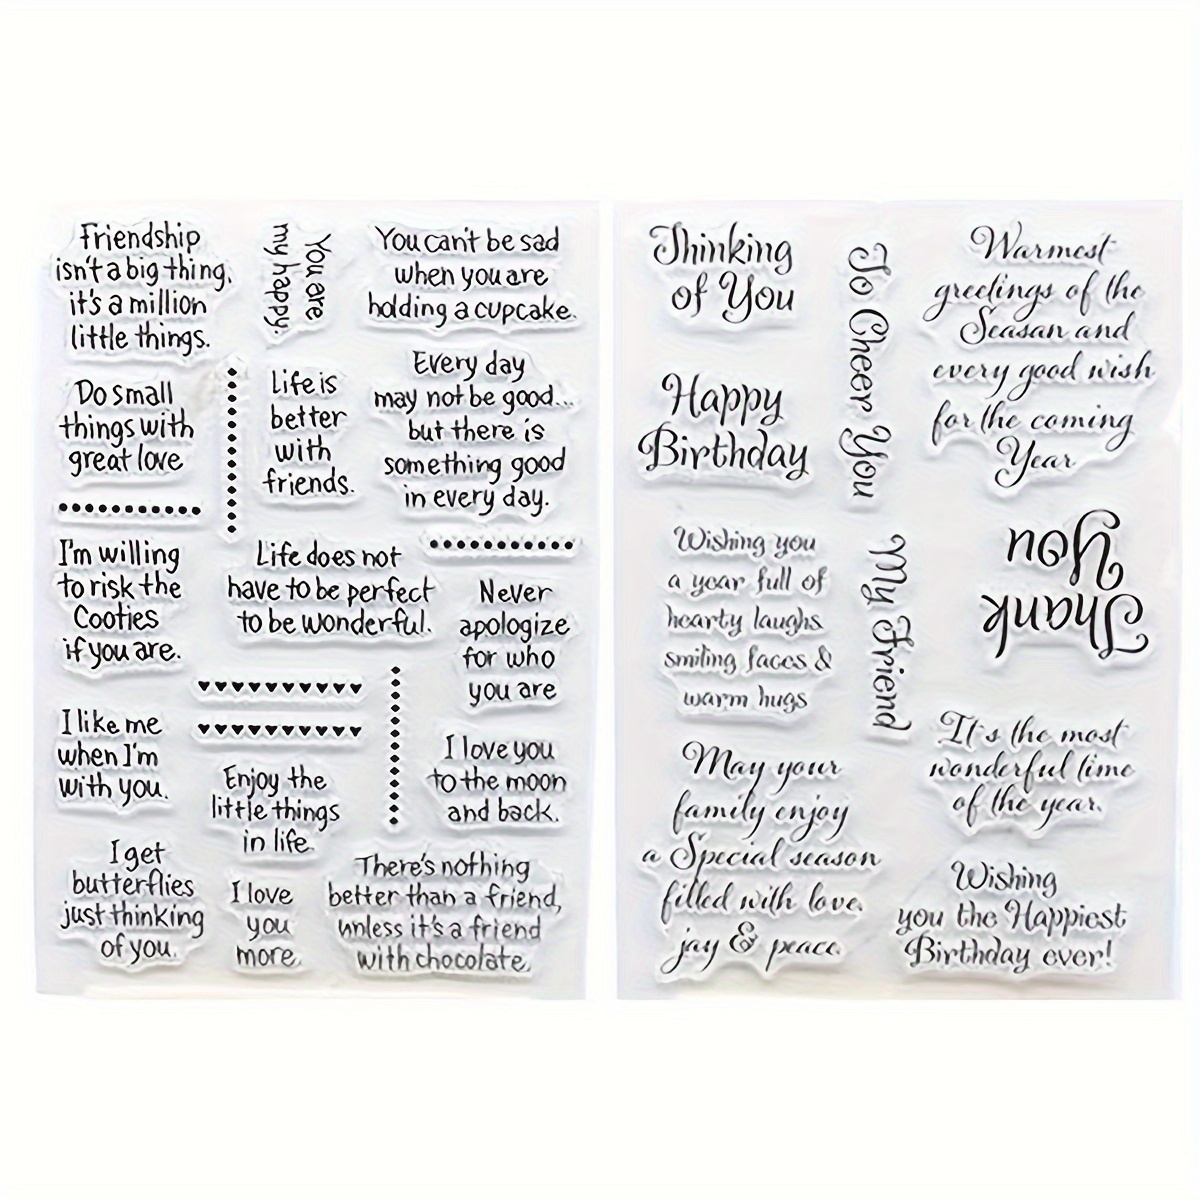 Friendship
isn't a big thing,
it's a million
little things.
You are
my happy.
You can't be sad
when you are
holding a cupcake.
Do small
things with
great love
Life is
better
with
friends.
Every day
may not be good...
but there is
something good
in every day.
I'm willing
to risk the
Cooties
if you are.
Life does not
have to be perfect
to be wonderful.
Never
apologize
for who
you are
I like me
when I'm
with you.
Enjoy the
little things
in life.
I love you
to the moon
and back.
I get
butterflies
just thinking
of you.
I love
you
more.
There's nothing
better than a friend,
unless it's a friend
with chocolate.
Thinking
of You
To Cheer You
Warmest
greetings of the
Seasan and
every good wish
for the coming
Year
Happy
Birthday
Thank
You
Wishing you
a year full of
hearty laughs
smiling faces &
warm hugs
My Friend
It's the most
wonderful time
of the year.
May your
family enjoy
a Special season
filled with love,
joy & peace.
Wishing
you the Happiest
Birthday ever!